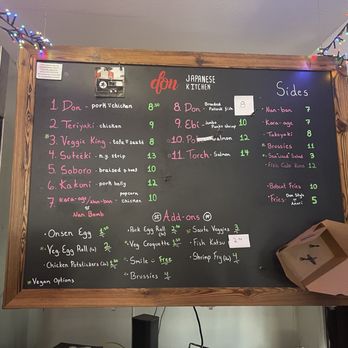 don JAPANESE KITCHEN
Sides
1. Don - pork or chicken 8.50
2. Teriyaki - chicken 9
3. Veggie King - tofu + sauté 8
4. Suteeki - n.y. strip 13
5. Soboro - braised g. beef 10
6. Kakuni - pork belly 12
7. Kara-age / Nan-ban - popcorn chicken 10
or Nan Bomb
8. Don - Breaded Pollock Fish 8
9. Ebi - Jumbo Panko shrimp 10
10. salmon 12
11. Torch - Salmon 14
Nan-ban 7
Kara-age 7
Takoyaki 8
Brussies 11
Seaweed Salad 3
Fish Cake 8
Bobcat Fries 10
Fries - Don Style or Aonori 5
Add-ons
Onsen Egg
Veg Egg Roll
Chicken Potstickers
Pork Egg Roll
Veg Croquette
Smile - Free
Brussies 4
Sauté Veggies
Fish Katsu
Shrimp Fry
Vegan Options